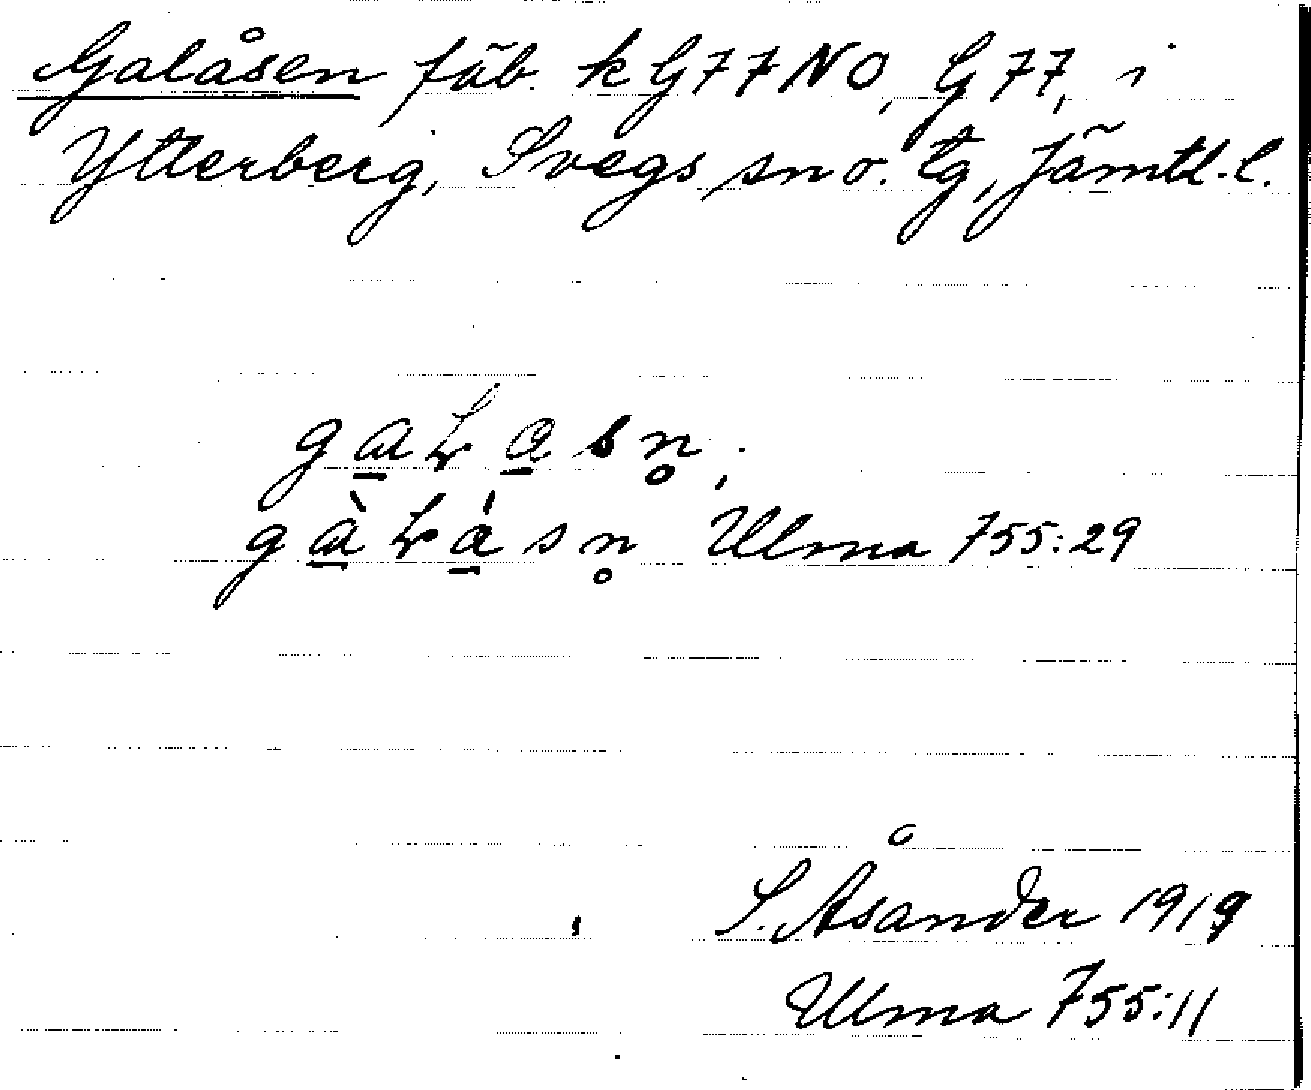 Galåsen fäb. k G77NO, G77, i
Ytterberg, Svegs sn o. tg, Jämtl. l.
ga̱ɫa̱sn̥,
gà̱ɫá̱sn̥ Ulma 755:29
S. Åsander 1919
Ulma 755:11